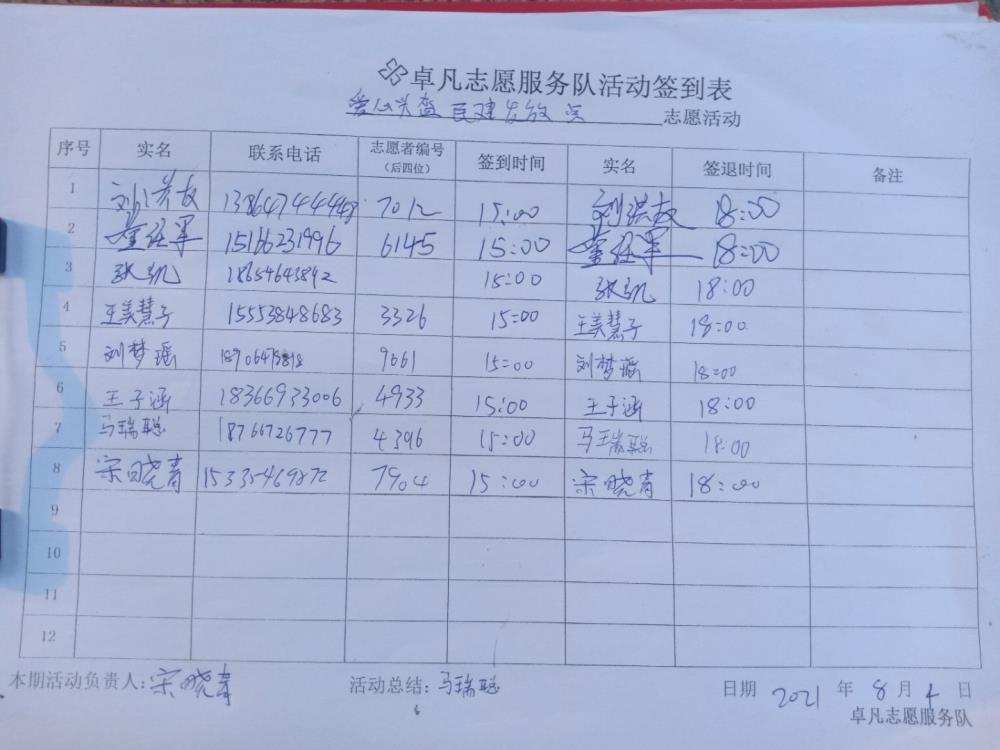 卓凡志愿服务队活动签到表
爱心头盔 民建发放 点 志愿活动
序号 实名 联系电话 志愿者编号(后四位) 签到时间 实名 签退时间 备注
1 刘洪友 7012 15:00 刘洪友 18:00
2 15166231996 6145 15:00 18:00
3 张凯 18654643892 15:00 张凯 18:00
4 王美慧子 15553848683 3326 15:00 王美慧子 18:00
5 刘梦瑶 9661 15:00 刘梦瑶 18:00
6 王子涵 18366933006 4933 15:00 王子涵 18:00
7 马瑞聪 18766726777 4396 15:00 马瑞聪 18:00
8 宋晓青 15335469872 7904 15:00 宋晓青 18:00
9
10
11
12
本期活动负责人:宋晓青 活动总结:马瑞聪 日期 2021 年 8 月 4 日
卓凡志愿服务队